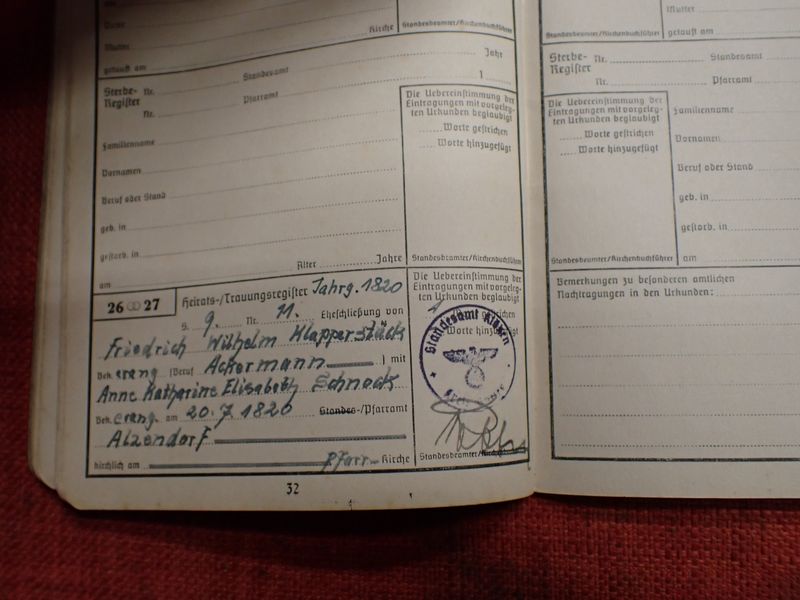 Name
Kirche
Standesbeamter/Kirchenbuchführer
Mutter
getauft am
Sterbe-Register
Nr.
Standesamt
Jahr
Nr.
Pfarramt
1
Familienname
Vornamen
Beruf oder Stand
geb. in
gestorb. in
Alter
Jahre
am
Die Uebereinstimmung der
Eintragungen mit vorgeleg-
ten Urkunden beglaubigt
Worte gestrichen
Worte hinzugefügt
Standesbeamter/Kirchenbuchführer
26 ∞ 27
Heirats-/Trauungsregister Jahrg. 1820
S. 9. Nr. 11. Eheschließung von
Friedrich Wilhelm Klapperstück
Bek. evang. (Beruf Ackermann) mit
Anne Katharine Elisabeth Schnock
Bek. evang. am 20.7.1820 Standes-/Pfarramt
Atzendorf
kirchlich am Pfarr-Kirche
Die Uebereinstimmung der
Eintragungen mit vorgeleg-
ten Urkunden beglaubigt
Worte hinzugefügt
Standesamt
Standesbeamter/Kirchenbuchführer
32
Mutter
getauft am
Standesbeamter/Kirchenbuchführer
Sterbe-
Register
Nr.
Standesamt
Nr.
Pfarramt
Die Uebereinstimmung der
Eintragungen mit vorgeleg-
ten Urkunden beglaubigt
Worte gestrichen
Worte hinzugefügt
Standesbeamter/Kirchenbuchführer
Familienname
Vornamen
Beruf oder Stand
geb. in
gestorb. in
am
Bemerkungen zu besonderen amtlichen
Nachtragungen in den Urkunden: